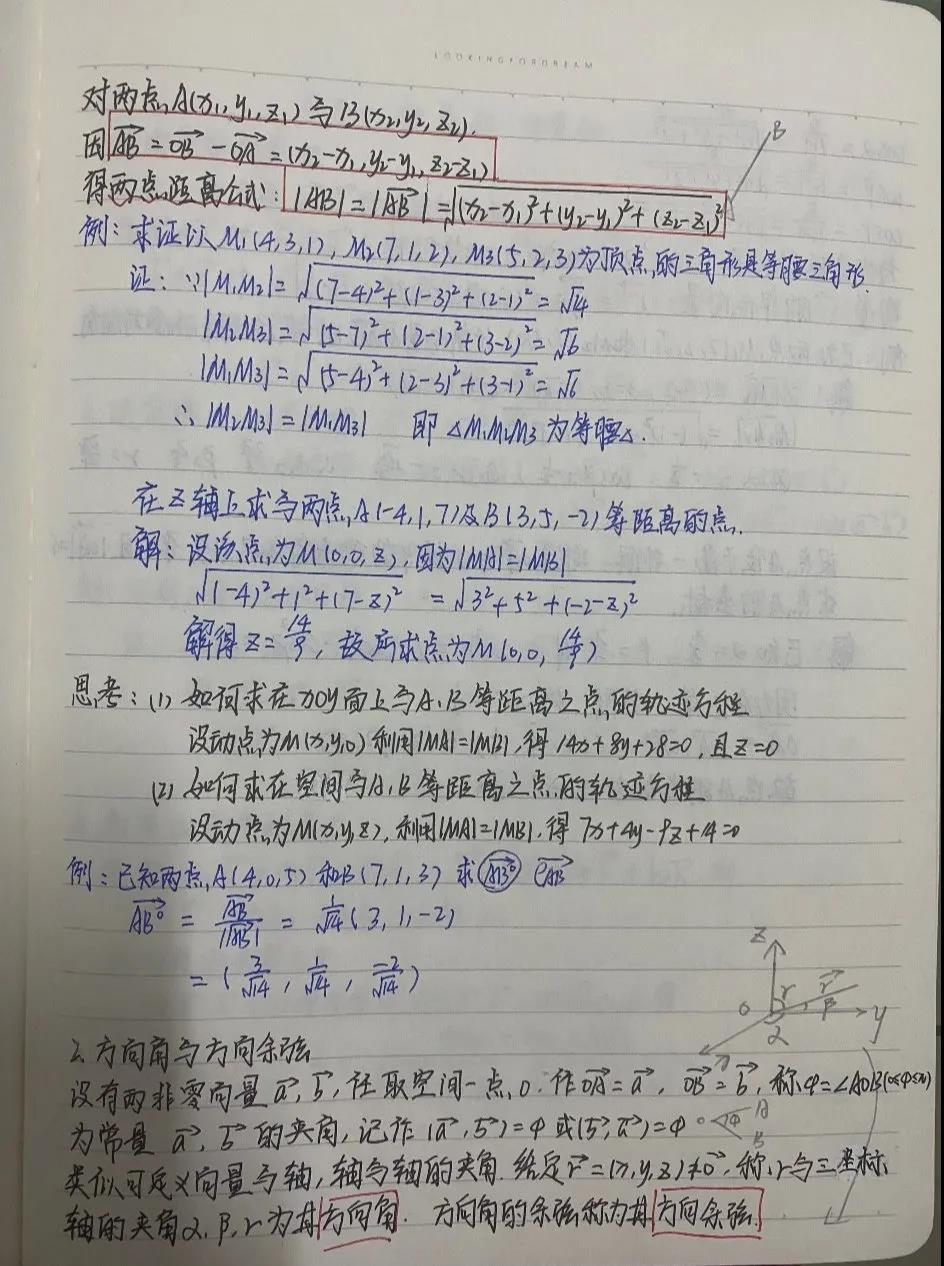 LOOKINGFORDREAM
对两点A(x₁,y₁,z₁)与B(x₂,y₂,z₂).
因AB→=OB→-OA→=(x₂-x₁,y₂-y₁,z₂-z₁)
得两点距离公式:|AB|=|AB→|=√(x₂-x₁)²+(y₂-y₁)²+(z₂-z₁)²
B
例:求证以M₁(4,3,1),M₂(7,1,2),M₃(5,2,3)为顶点的三角形是等腰三角形.
证:∵|M₁M₂|=√(7-4)²+(1-3)²+(2-1)²=√14
|M₂M₃|=√(5-7)²+(2-1)²+(3-2)²=√6
|M₁M₃|=√(5-4)²+(2-3)²+(3-1)²=√6
∴|M₂M₃|=|M₁M₃| 即△M₁M₂M₃为等腰△.
在Z轴上求与两点A(-4,1,7)及B(3,5,-2)等距离的点.
解:设该点为M(0,0,z),因为|MA|=|MB|
√(-4)²+1²+(7-z)² =√3²+5²+(-2-z)²
解得z=14/9,故所求点为M(0,0,14/9)
思考:(1)如何求在xoy面上与A、B等距离之点的轨迹方程
设动点为M(x,y,0)利用|MA|=|MB|,得14x+8y+28=0,且z=0
(2)如何求在空间与A、B等距离之点的轨迹方程
设动点为M(x,y,z),利用|MA|=|MB|.得7x+4y-9z+14=0
例:已知两点A(4,0,5)和B(7,1,3)求AB°→ eAB→
AB°→=AB→/|AB→|=1/√14(3,1,-2)
=(3/√14,1/√14,-2/√14)
z
r r→
o β y
α
x
2.方向角与方向余弦
设有两非零向量a→,b→,任取空间一点O.作OA→=a→,OB→=b→,称φ=∠AOB(0≤φ≤π)
为常量a→,b→的夹角,记作(a→,b→)=φ或(b→,a→)=φ o φ A B
类似可定义向量与轴,轴与轴的夹角.给定r→=(x,y,z)≠0→.称r与三坐标
轴的夹角α,β,r为其方向角.方向角的余弦称为其方向余弦.